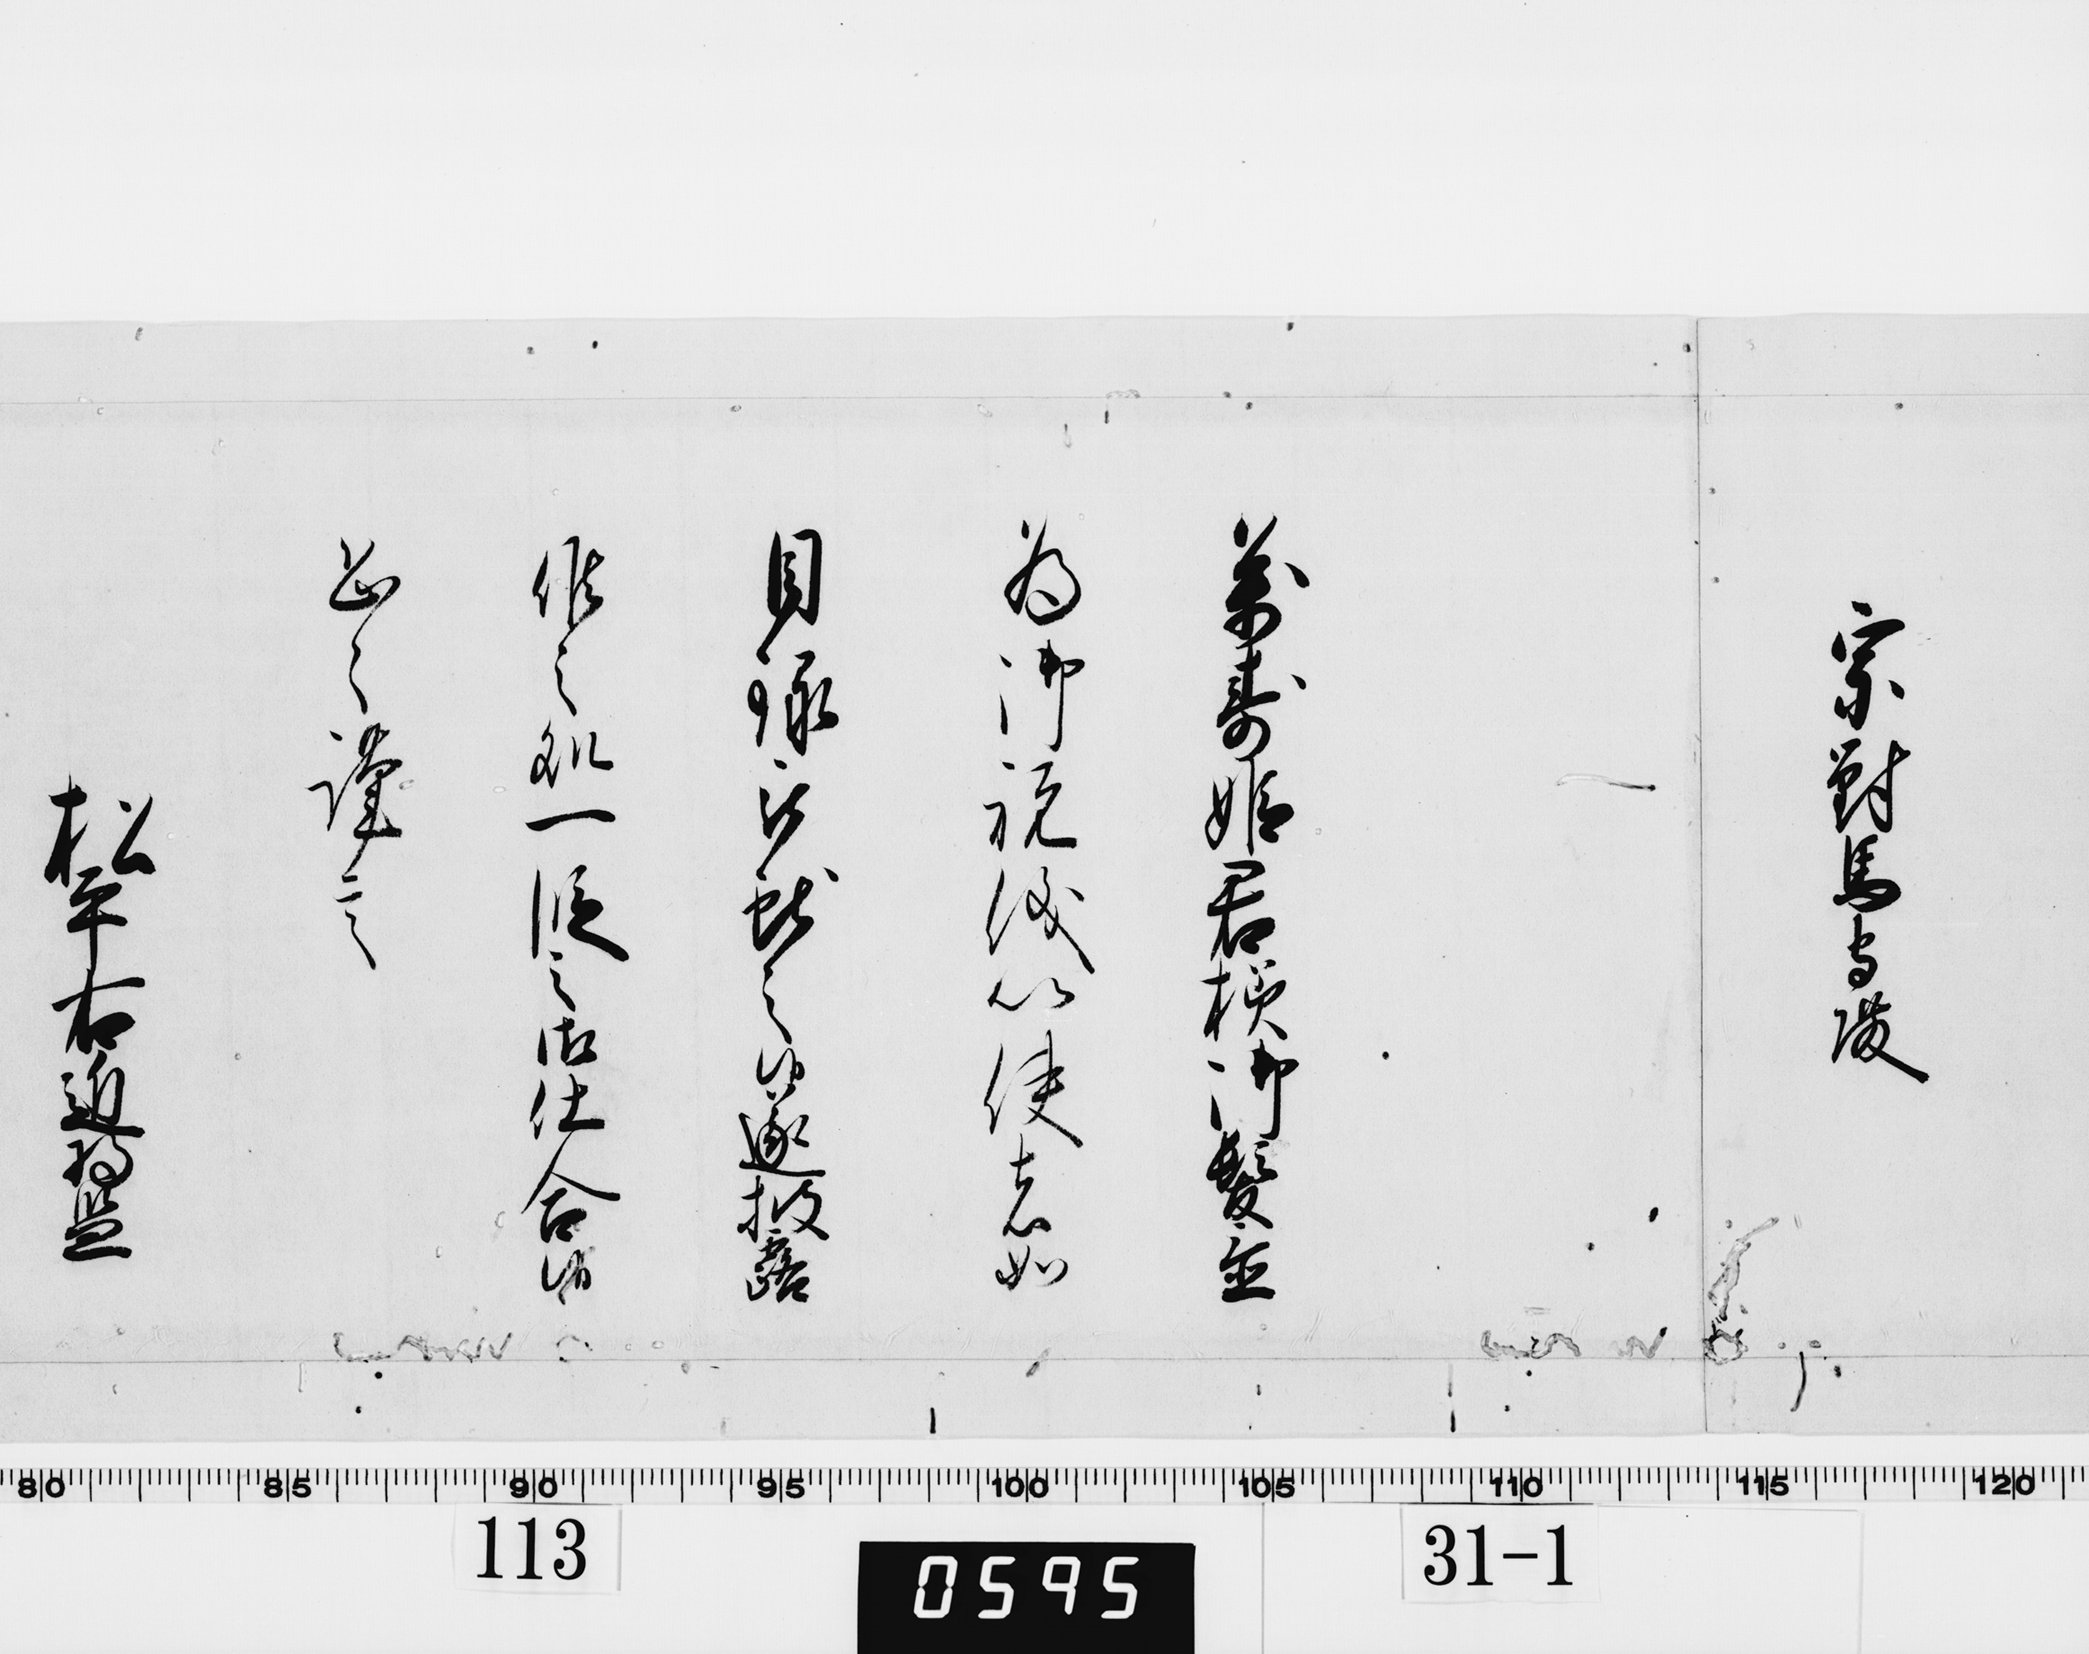 宗對馬守殿
萬寿姫君様御髪置
為御祝儀以使者如
目録被献之候遂披露
候之処一段之御仕合候
恐々謹言
松平右近将監
80 85 90 95 100 105 110 115 120
113 0595 31-1